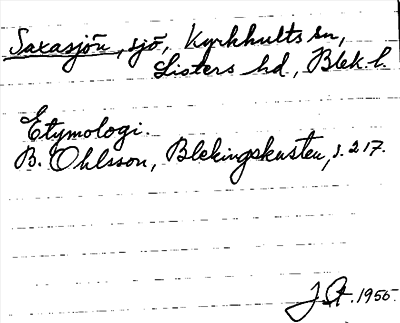 Saxasjön, sjö, Kyrkhults sn,
Listers hd, Blek. l.
Etymologi.
B. Ohlsson, Blekingskusten, s. 217.
1955.